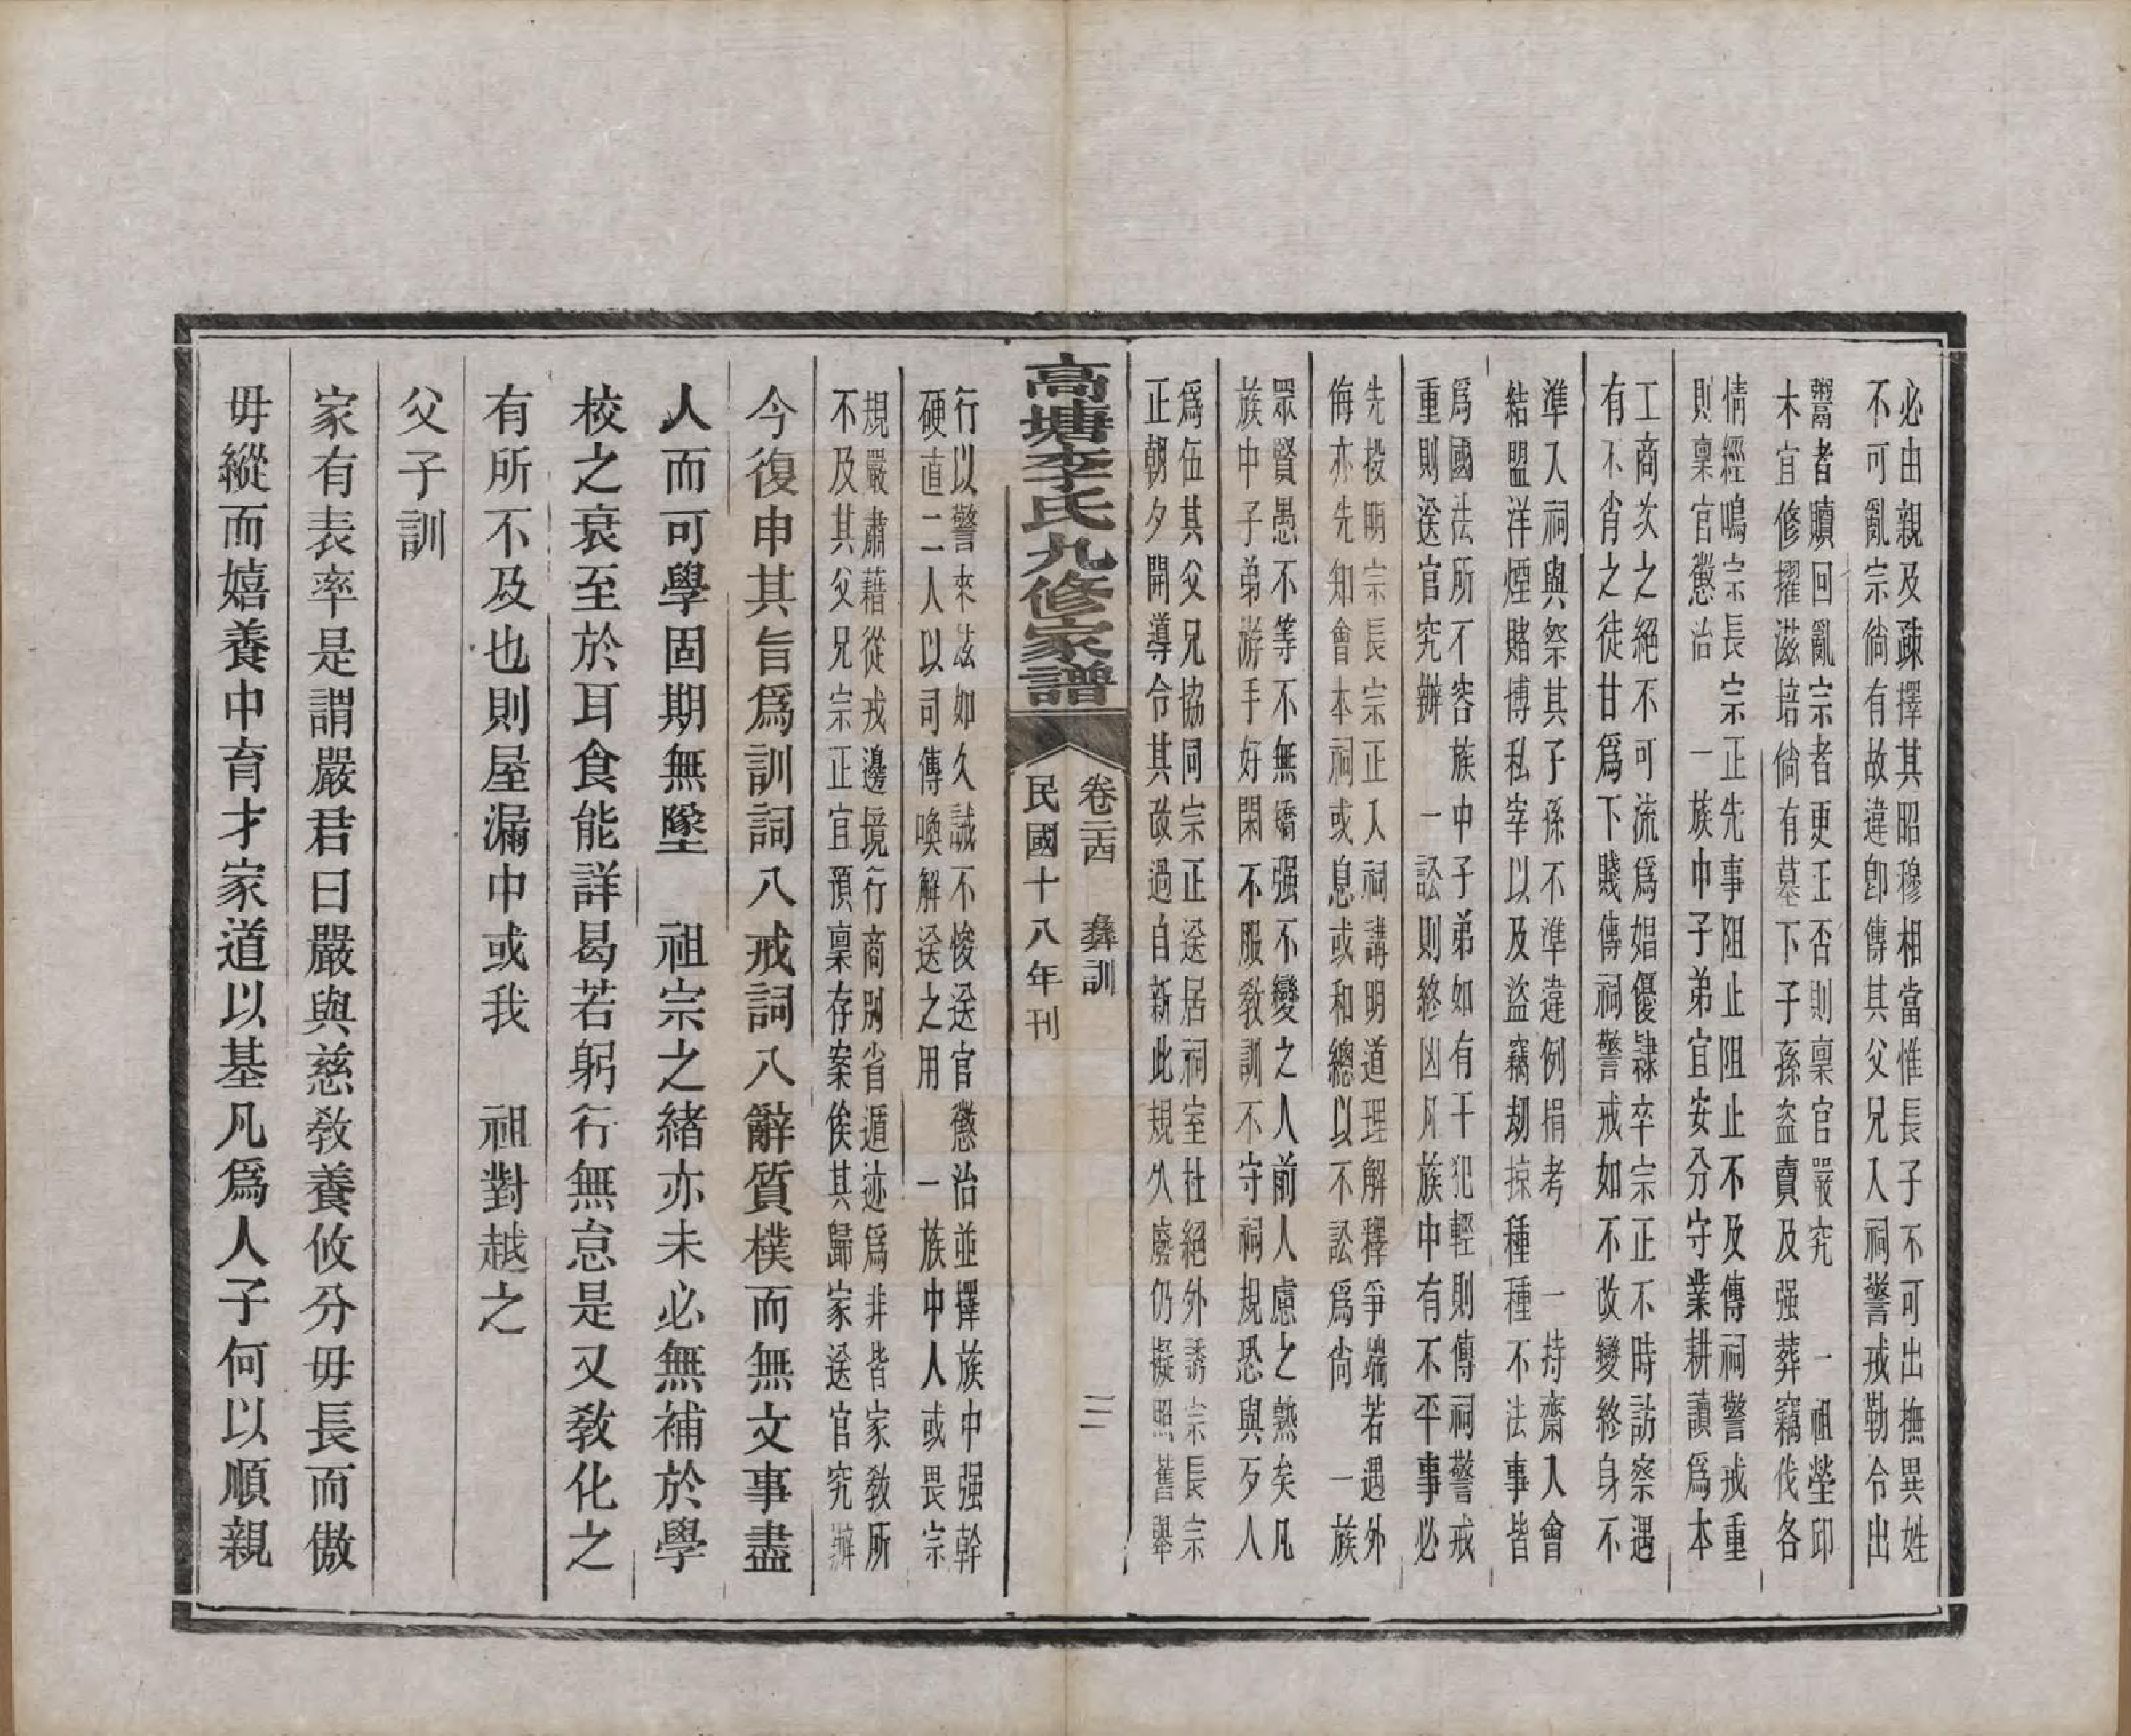 必由親及疎擇其昭穆相當惟長子不可出撫異姓
不可亂宗徜有故違卽傳其父兄入祠警戒勒令出
鬻者贖回亂宗者更正否則稟官嚴究　一祖塋邱
木宜修擢滋培徜有墓下子孫盜賣及强葬竊伐各
情經鳴宗長宗正先事阻止阻止不及傳祠警戒重
則稟官懲治　一族中子弟宜安分守業耕讀爲本
工商次之絕不可流爲娼優隸卒宗正不時訪察遇
有不肖之徒甘爲下賤傳祠警戒如不改變終身不
準入祠與祭其子孫不準違例捐考　一持齋入會
結盟洋煙賭博私宰以及盜竊刼掠種種不法事皆
爲國法所不容　族中子弟如有干犯輕則傳祠警戒
重則送官究辦　一訟則終凶凡族中有不平事必
先投明宗長宗正入祠講明道理解釋爭端若遇外
侮亦先知會本祠或息或和總以不訟爲尙　一族
眾賢愚不等不無矯强不變之人前人慮之熟矣凡
族中子弟游手好閑不服敎訓不守祠規恐與歹人
爲伍其父兄協同宗正送居祠室杜絕外誘宗長宗
正朝夕開導令其改過自新此規久廢仍擬照舊舉
高塘李氏九修家譜
卷二四　彝訓
三
民國十八年刊
行以警來茲如久誡不悛送官懲治並擇族中强幹
硬直二人以司傳喚解送之用　一族中人或畏宗
規嚴肅藉從戎邊境行商別省遁迹爲非皆家敎所
不及其父兄宗正宜預稟存案俟其歸家送官究辦
今復申其旨爲訓詞八戒詞八辭質樸而無文事盡
人而可學固期無墜　祖宗之緒亦未必無補於學
校之衰至於耳食能詳曷若躬行無怠是又敎化之
有所不及也則屋漏中或我　祖對越之
父子訓
家有表率是謂嚴君曰嚴與慈敎養攸分毋長而傲
毋縱而嬉養中育才家道以基凡爲人子何以順親